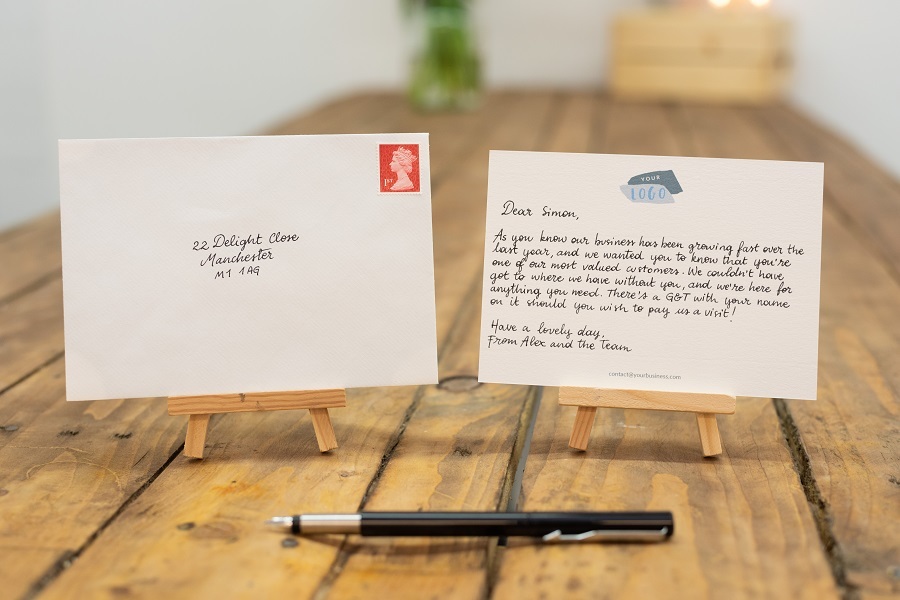 22 Delight Close
Manchester
M1 1AG
1ST
YOUR
LOGO
Dear Simon,
As you know our business has been growing fast over the
last year, and we wanted you to know that you're
one of our most valued customers. We couldn't have
got to where we have without you, and we're here for
anything you need. There's a G&T with your name
on it should you wish to pay us a visit!
Have a lovely day,
From Alex and the Team
contact@yourbusiness.com